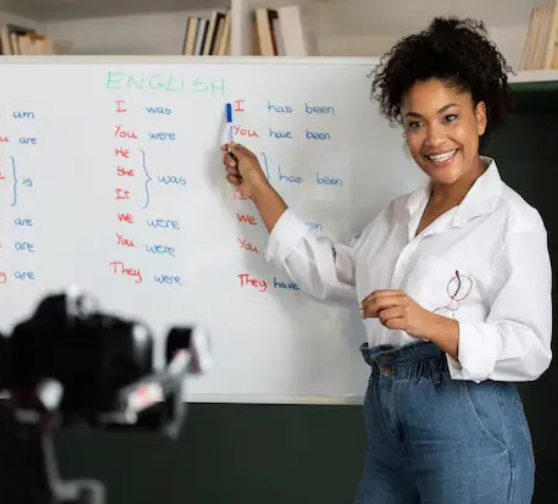 ENGLISH
am
are
is
are
are
are
I was
You were
He
She was
It
We were
You were
They were
I has been
You have been
has been
We
You
They have